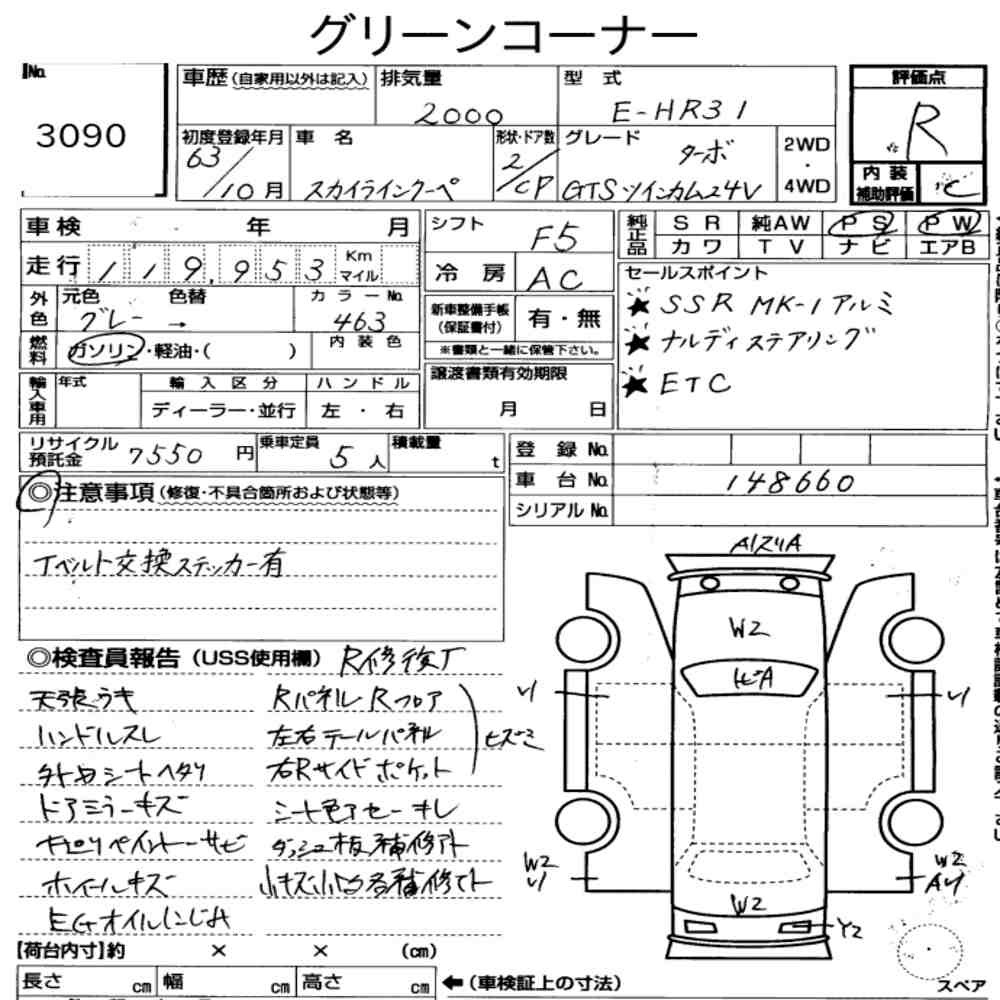 グリーンコーナー
No.
3090
車歴(自家用以外は記入)
排気量
2000
型 式
E-HR31
評価点
R
初度登録年月
63/10月
車 名
スカイラインクーペ
形状・ドア数
2/CP
グレード
ターボ
GTSツインカム24V
2WD
・
4WD
内装
補助評価
C
車検 年 月
シフト
F5
純正品
SR 純AW PS PW
カワ TV ナビ エアB
走行 119,953 Km マイル
冷房
AC
セールスポイント
★SSR MK-1アルミ
★ナルディステアリング
★ETC
外色
元色 色替
グレー →
カラーNo.
463
新車整備手帳
(保証書付)
有・無
※書類と一緒に保管下さい。
燃料
ガソリン・軽油・( )
内装色
輸入車用
年式
輸入区分
ディーラー・並行
ハンドル
左・右
譲渡書類有効期限
月 日
リサイクル
預託金
7550円
乗車定員
5人
積載量
t
登録No.
車台No.
148660
シリアルNo.
◎注意事項(修復・不具合箇所および状態等)
Tベルト交換ステッカー有
◎検査員報告(USS使用欄)
R修復ア
天張うキ
ハンドルスレ
外内シートヘタリ
ドアミラーキズ
ホイールキズ
EGオイルにじみ
Rパネル Rフロア
左右テールパネル
右Rサイドポケット
ヒズミ
W2
W2
W2
W2
Y2
スペア
【荷台内寸】約 × × (cm)
長さ cm 幅 cm 高さ cm
←(車検証上の寸法)